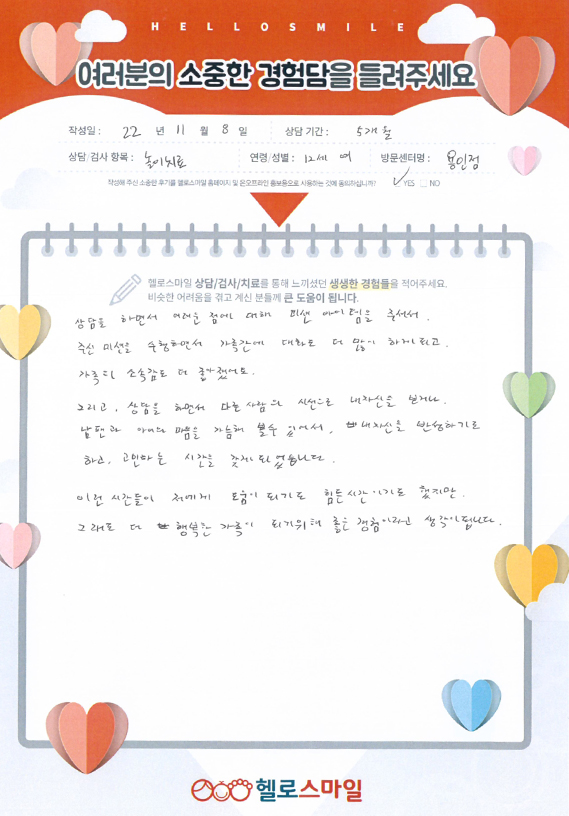 HELLOSMILE
여러분의 소중한 경험담을 들려주세요
작성일 : 22 년 11 월 8 일 상담 기간 : 5개월
상담/검사 항목 : 놀이치료 연령/성별 : 12세 여 방문센터명 : 용인점
작성해 주신 소중한 후기를 헬로스마일 홈페이지 및 온오프라인 홍보용으로 사용하는 것에 동의하십니까? YES NO
헬로스마일 상담/검사/치료를 통해 느끼셨던 생생한 경험들을 적어주세요.
비슷한 어려움을 겪고 계신 분들께 큰 도움이 됩니다.
상담을 하면서 어려운 점에 대해 미션 아이템을 주셔서.
주신 미션을 수행하면서 가족간에 대화도 더 많이 하게되고.
가족의 소속감도 더 좋아졌어요.
그리고, 상담을 하면서 다른사람의 시선으로 내자신을 보거나.
남편과 아이의 마음을 가늠해 볼수 있어서, 내자신을 반성하기도
하고, 고민하는 시간을 갖게되었습니다.
이런 시간들이 저에게 도움이 되기도 힘든시간이기도 했지만.
그래도 더 행복한 가족이 되기위해 좋은 경험이라고 생각이됩니다.
헬로스마일